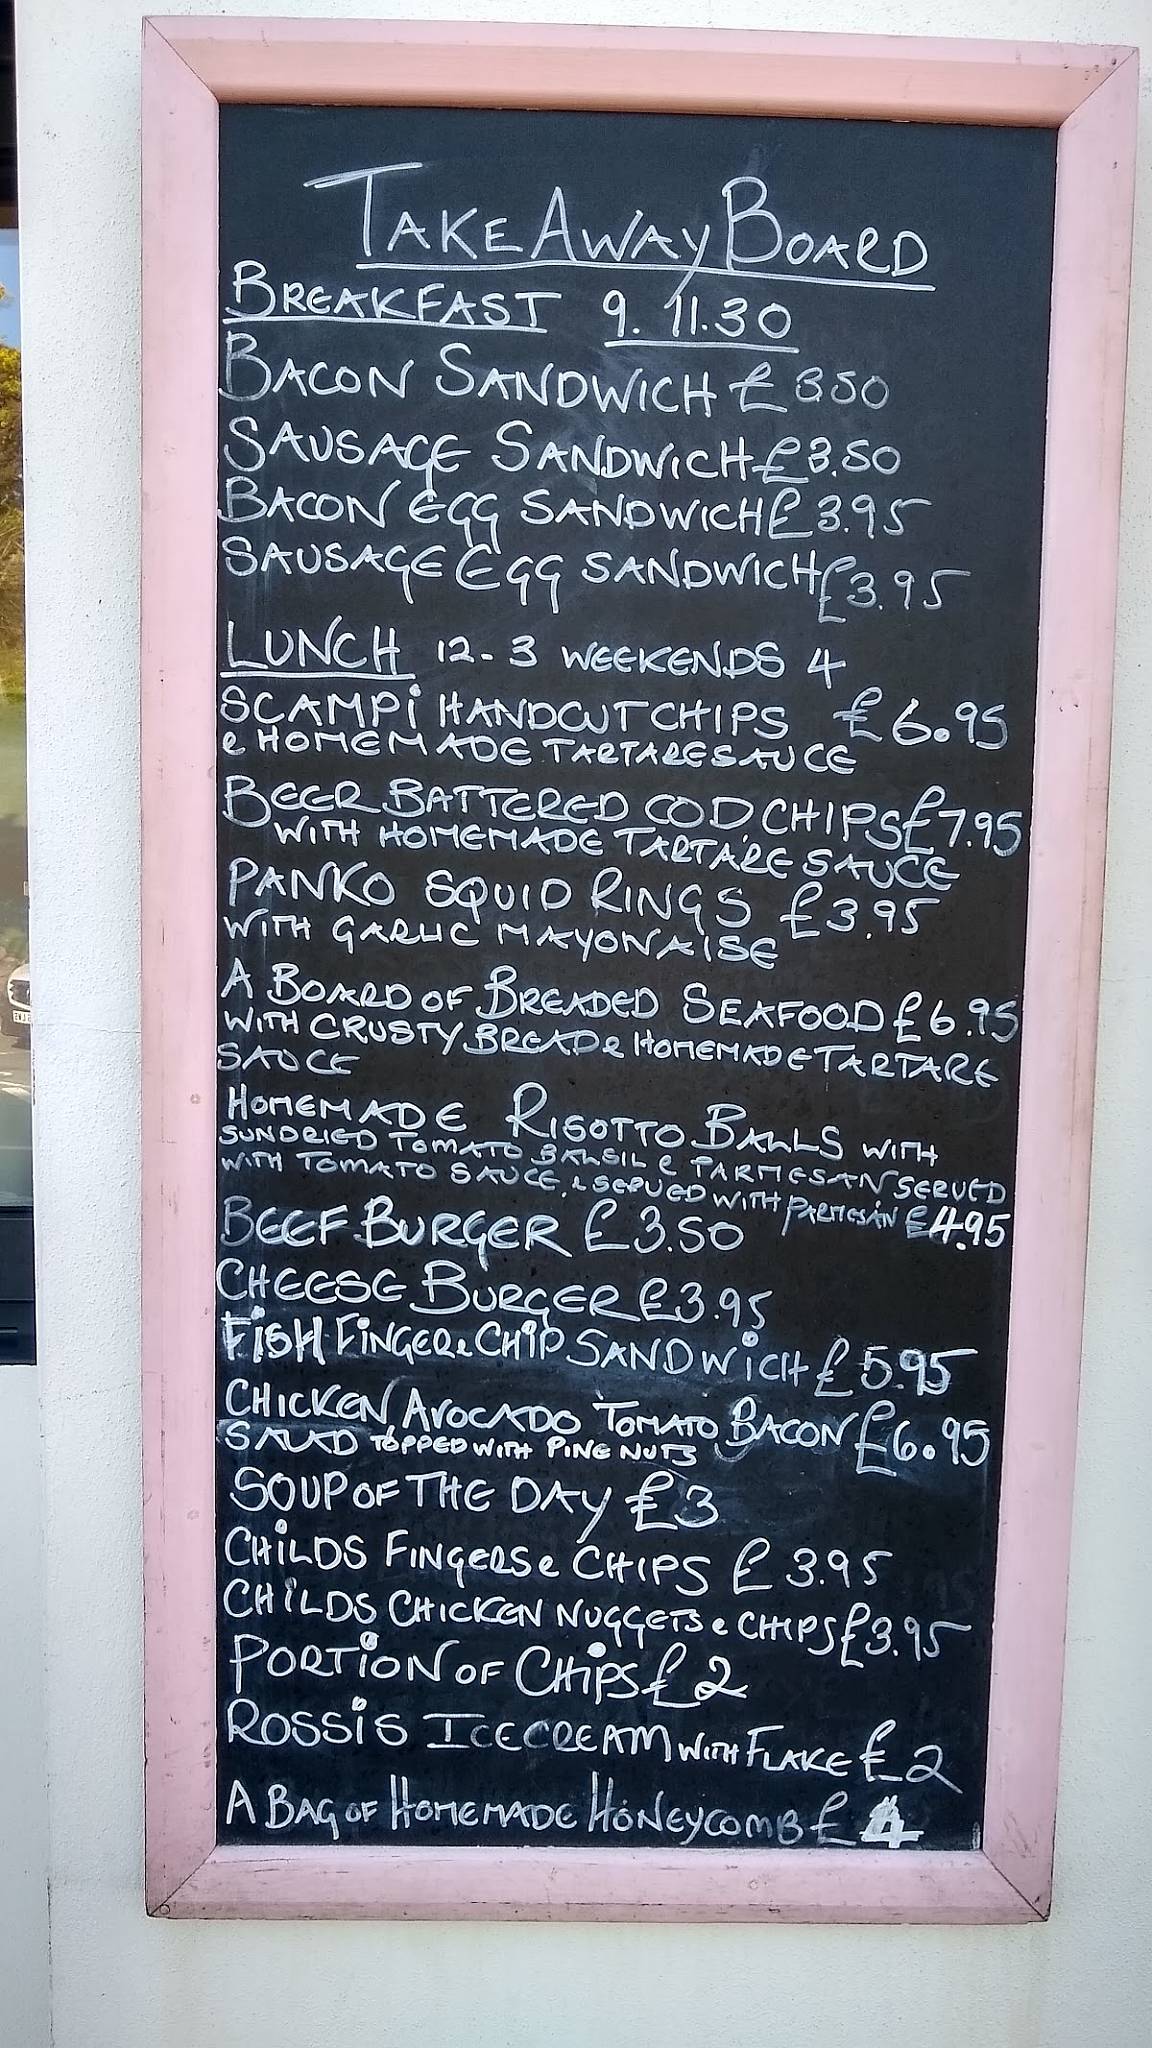 TAKE AWAY BOARD
BREAKFAST 9. 11.30
BACON SANDWICH £3.50
SAUSAGE SANDWICH £3.50
BACON EGG SANDWICH £3.95
SAUSAGE EGG SANDWICH £3.95
LUNCH 12-3 WEEKENDS 4
SCAMPI HANDCUT CHIPS £6.95
& HOMEMADE TARTARE SAUCE
BEER BATTERED COD, CHIPS £7.95
WITH HOMEMADE TARTARE SAUCE
PANKO SQUID RINGS £3.95
WITH GARLIC MAYONAISE
A BOARD OF BREADED SEAFOOD £6.95
WITH CRUSTY BREAD & HOMEMADE TARTARE
SAUCE
HOMEMADE RISOTTO BALLS WITH
SUNDRIED TOMATO BALSIL & PARMESAN SERVED
WITH TOMATO SAUCE, & SERVED WITH PARMESAN £4.95
BEEF BURGER £3.50
CHEESE BURGER £3.95
FISH FINGER & CHIP SANDWICH £5.95
CHICKEN AVOCADO TOMATO BACON £6.95
SALAD TOPPED WITH PINE NUTS
SOUP OF THE DAY £3
CHILDS FINGERS & CHIPS £3.95
CHILDS CHICKEN NUGGETS & CHIPS £3.95
PORTION OF CHIPS £2
ROSSIS ICE CREAM WITH FLAKE £2
A BAG OF HOMEMADE HONEYCOMB £4